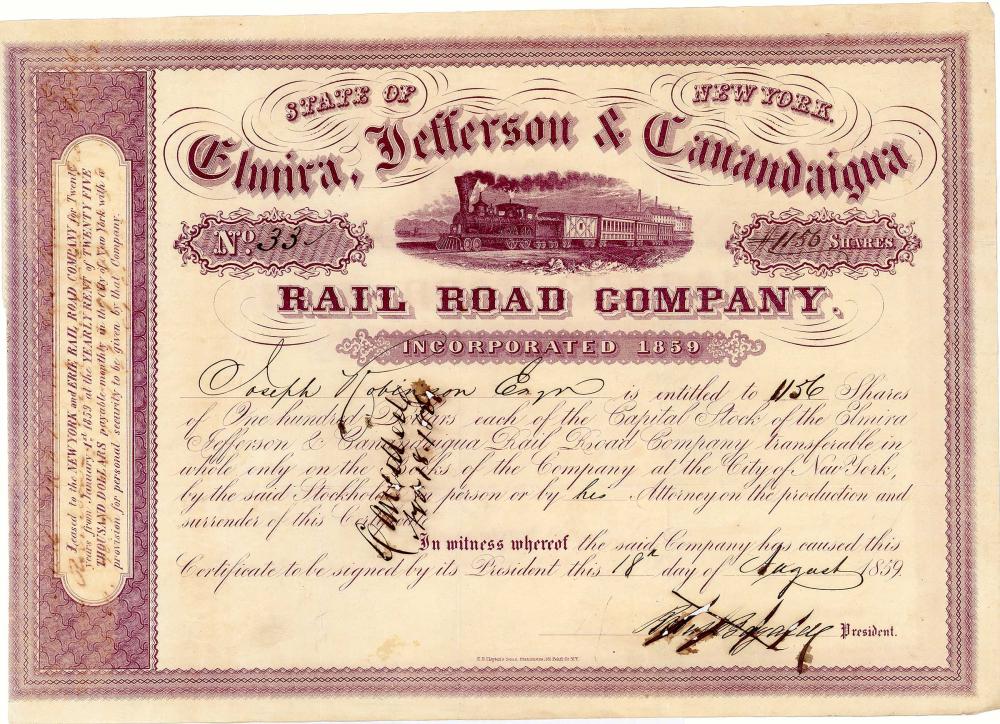 STATE OF NEW YORK.
Elmira, Jefferson & Canandaigua
No. 33
1156 SHARES
RAIL ROAD COMPANY.
INCORPORATED 1859
Joseph Robinson Esqr is entitled to 1156 Shares
of One hundred Dollars each of the Capital Stock of the Elmira
Jefferson & Canandaigua Rail Road Company transferable in
whole only on the Books of the Company at the City of New York,
by the said Stockholder in person or by his Attorney on the production and
surrender of this
In witness whereof the said Company has caused this
Certificate to be signed by its President this 18th day of August 1859.
President.
Leased to the NEW YORK and ERIE RAIL ROAD COMPANY for Twenty
years from January 1st 1859 at the YEARLY RENT of TWENTY FIVE
THOUSAND DOLLARS payable monthly in the City of New York with a
provision for personal security to be given by that Company.
Cancelled